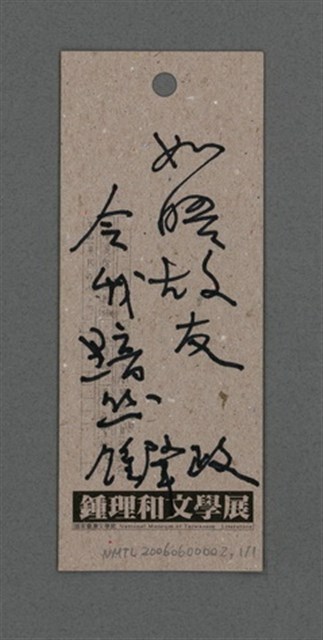 如晤故友
令我黯然
鍾肇政
鍾理和文學展
國家臺灣文學館 National Museum of Taiwanese Literature
NMTL 20060600002, 1/1